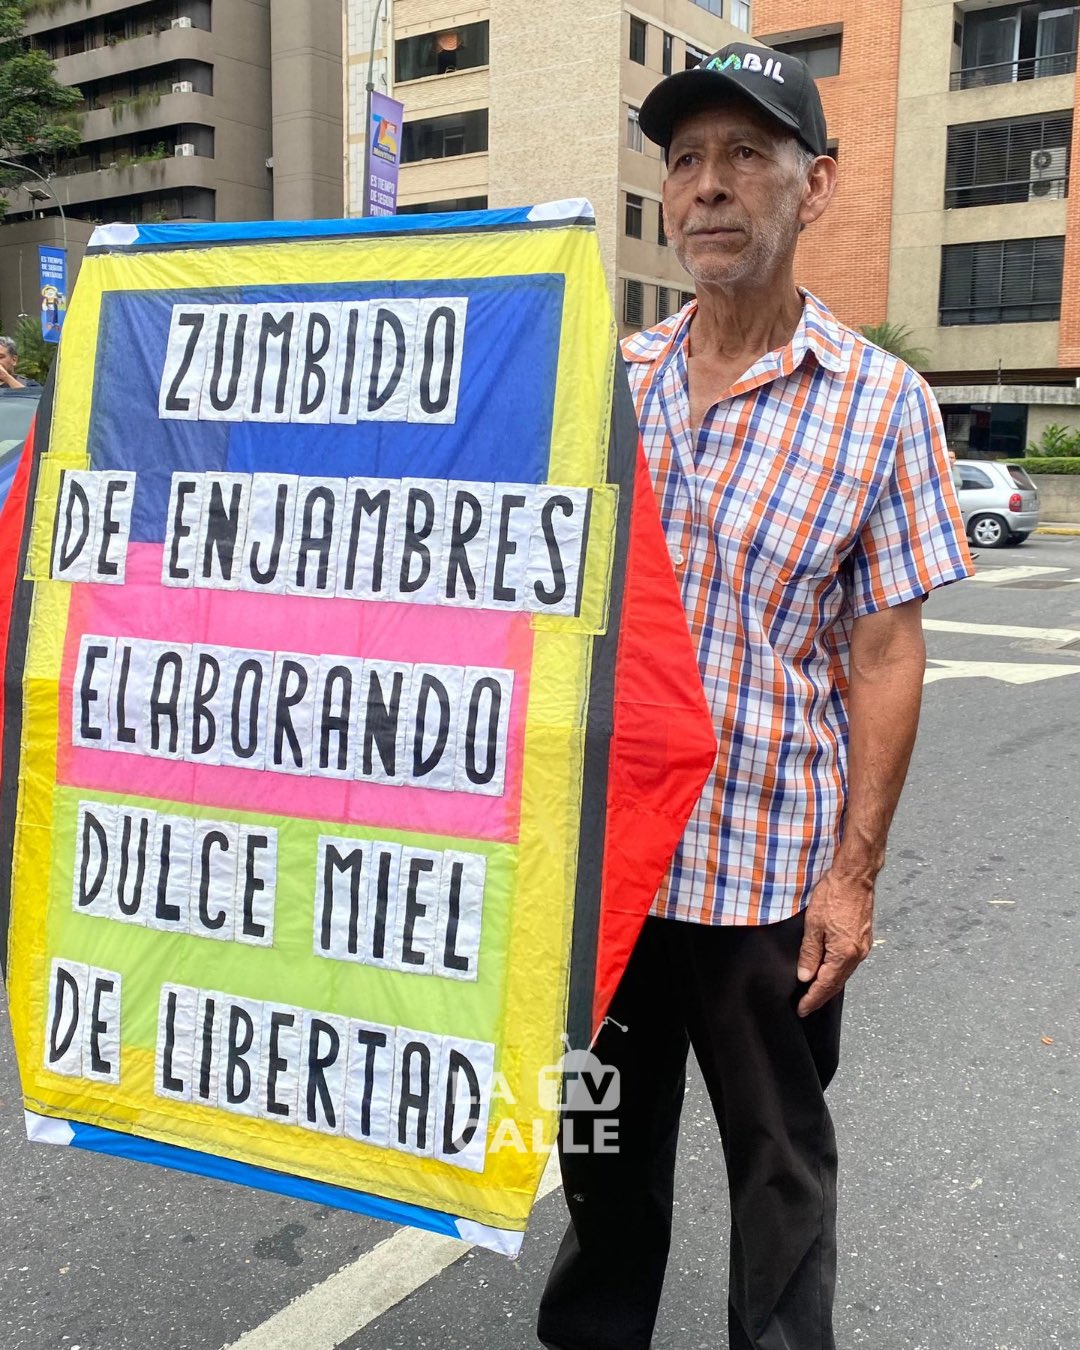 MBIL
ES TIEMPO
DE SEGUIR
PINTANDO
ES TIEMPO
DE SEGUIR
ZUMBIDO
DE ENJAMBRES
ELABORANDO
DULCE MIEL
DE LIBERTAD
LA TV
CALLE